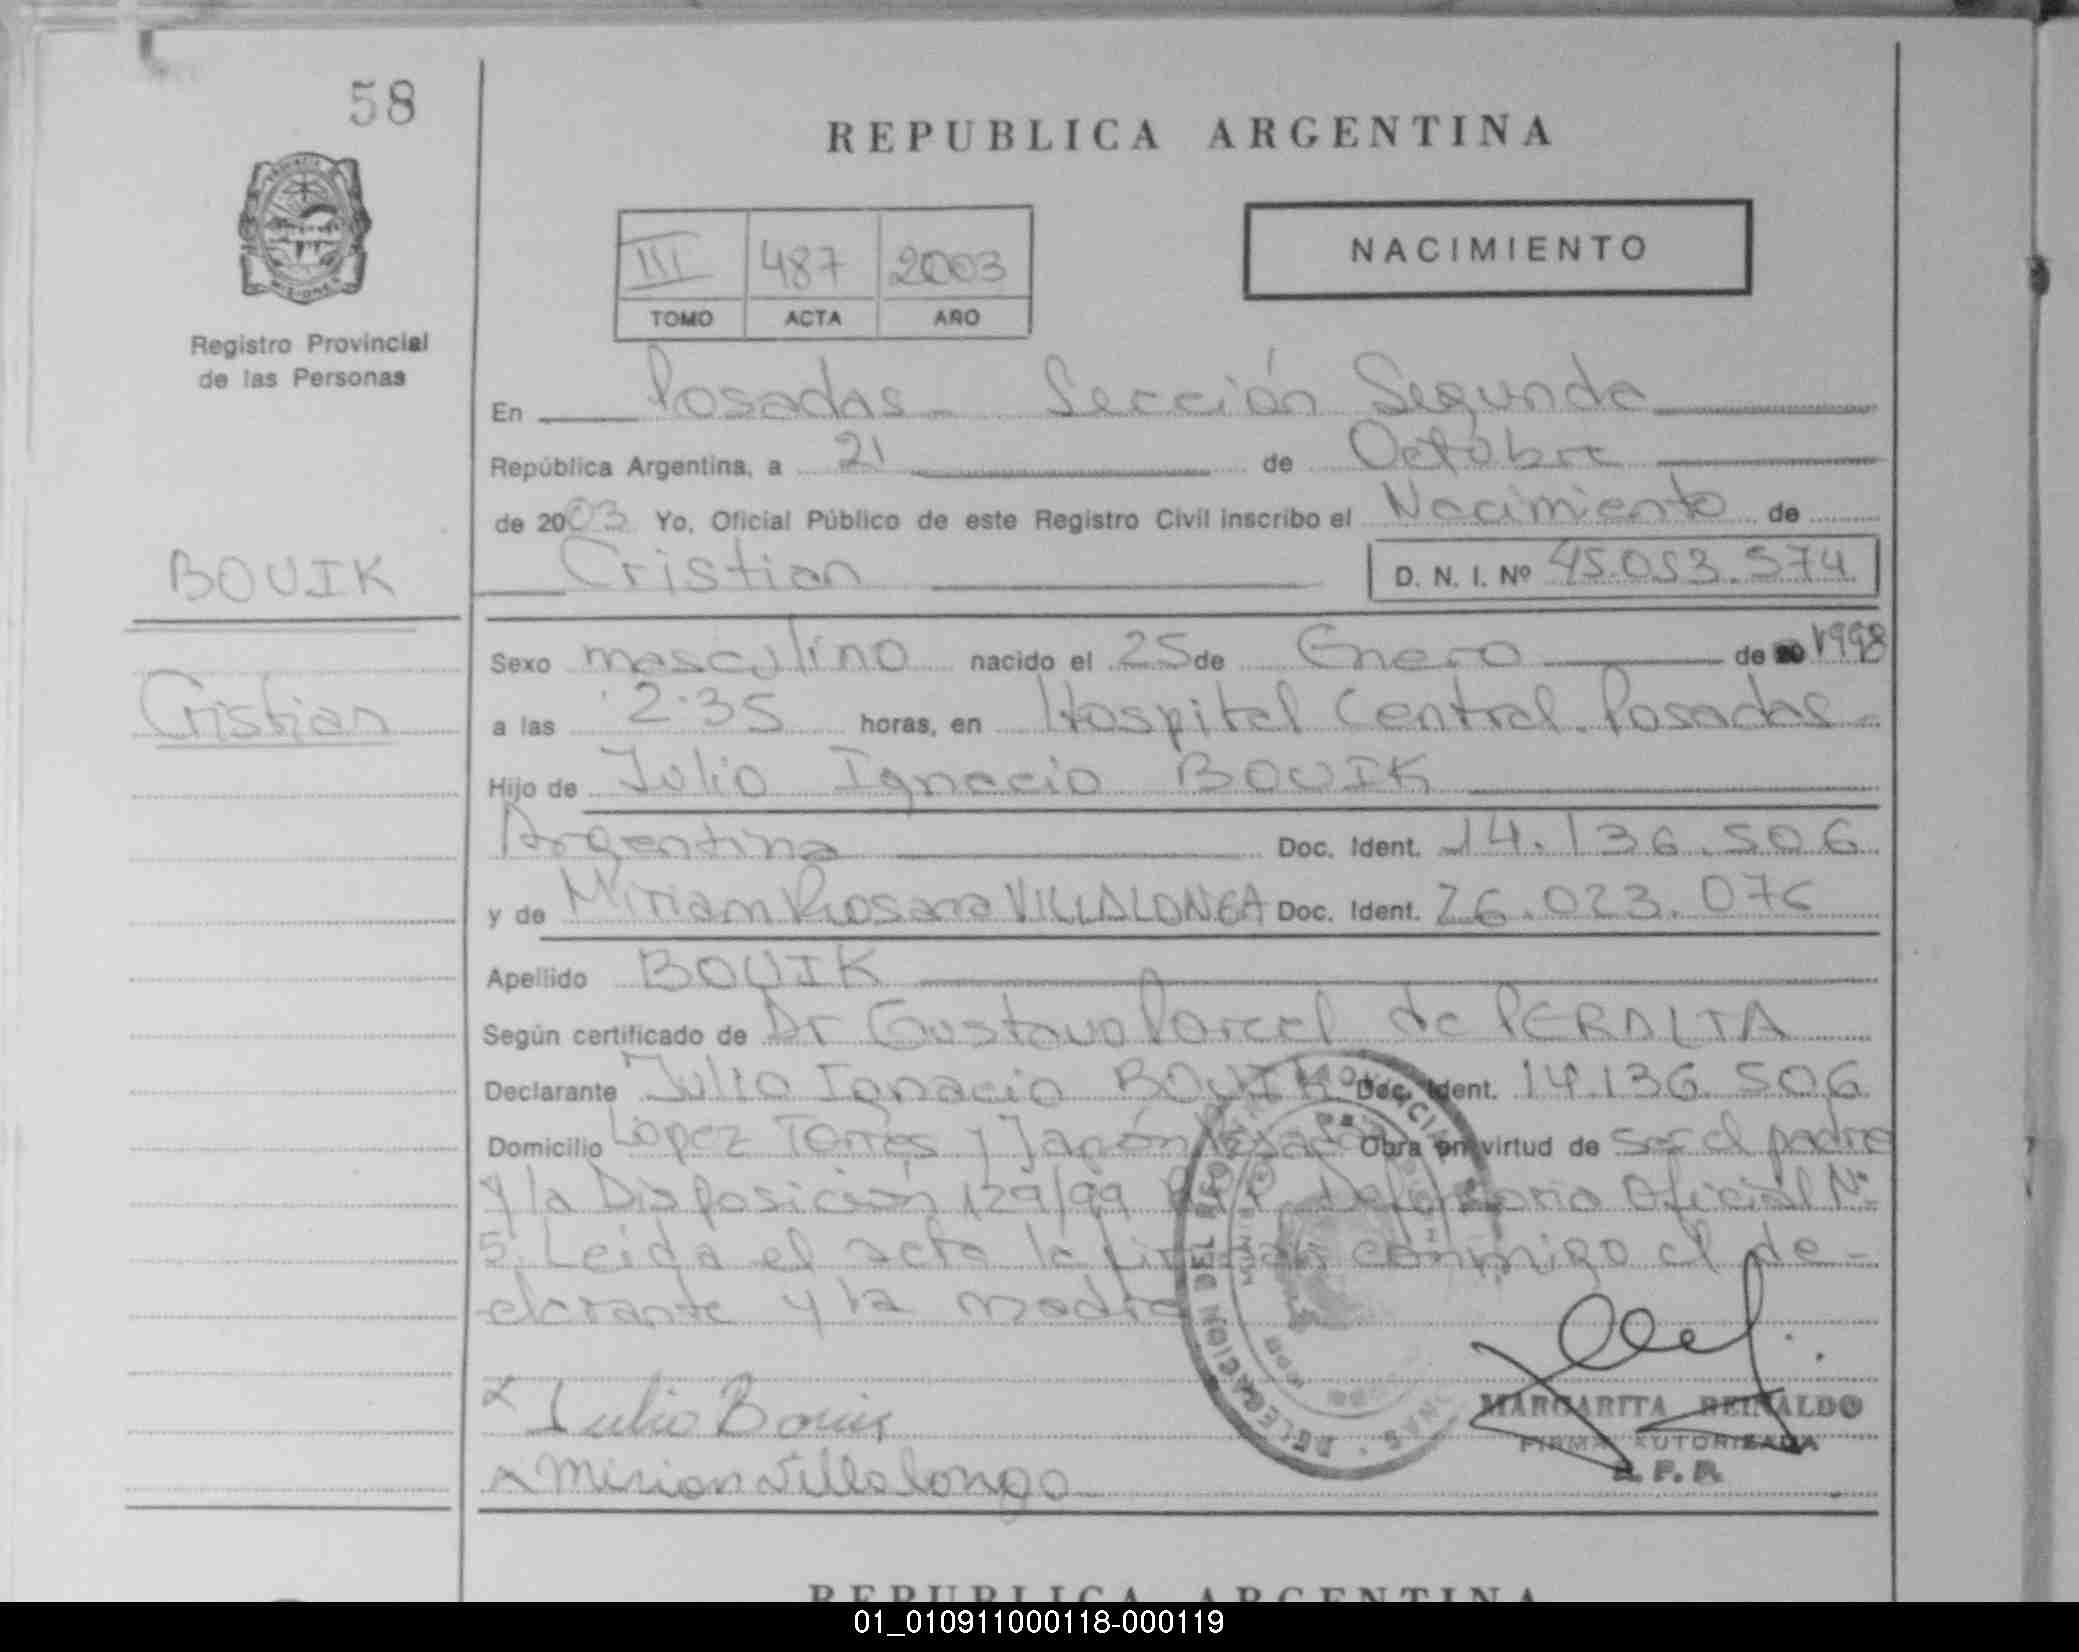 58
REPUBLICA ARGENTINA
NACIMIENTO
III 487 2003
TOMO ACTA AÑO
Registro Provincial
de las Personas
En Posadas - Sección Segunda
República Argentina, a 21 de Octubre
de 2003 Yo, Oficial Público de este Registro Civil inscribo el Nacimiento de
Cristian D. N. I. Nº 45.053.574
BOUIK
Cristian
Sexo masculino nacido el 25 de Enero de 1998
a las 2:35 horas, en Hospital Central. Posadas -
Hijo de Julio Ignacio BOUIK
Argentina Doc. Ident. 14.136.506
y de Miriam Rosana VILLALONGA Doc. Ident. 26.023.076
Apellido BOUIK
Según certificado de Dr Gustavo Porcel de PERALTA
Declarante Julio Ignacio BOUIK Doc. Ident. 14.136.506
Domicilio Lopez Torres y Japón Posadas Obra en virtud de ser el padre
y la Disposición 129/99 Defensoria Oficial Nº
5. Leida el acta la firman conmigo el de-
clarante y la madre
Julio Bouik
Mirian Villalonga
DELEGACION DEL REG
MARGARITA REINALDO
FIRMA AUTORIZADA
R. P. P.
REPUBLICA ARGENTINA
01_010911000118-000119